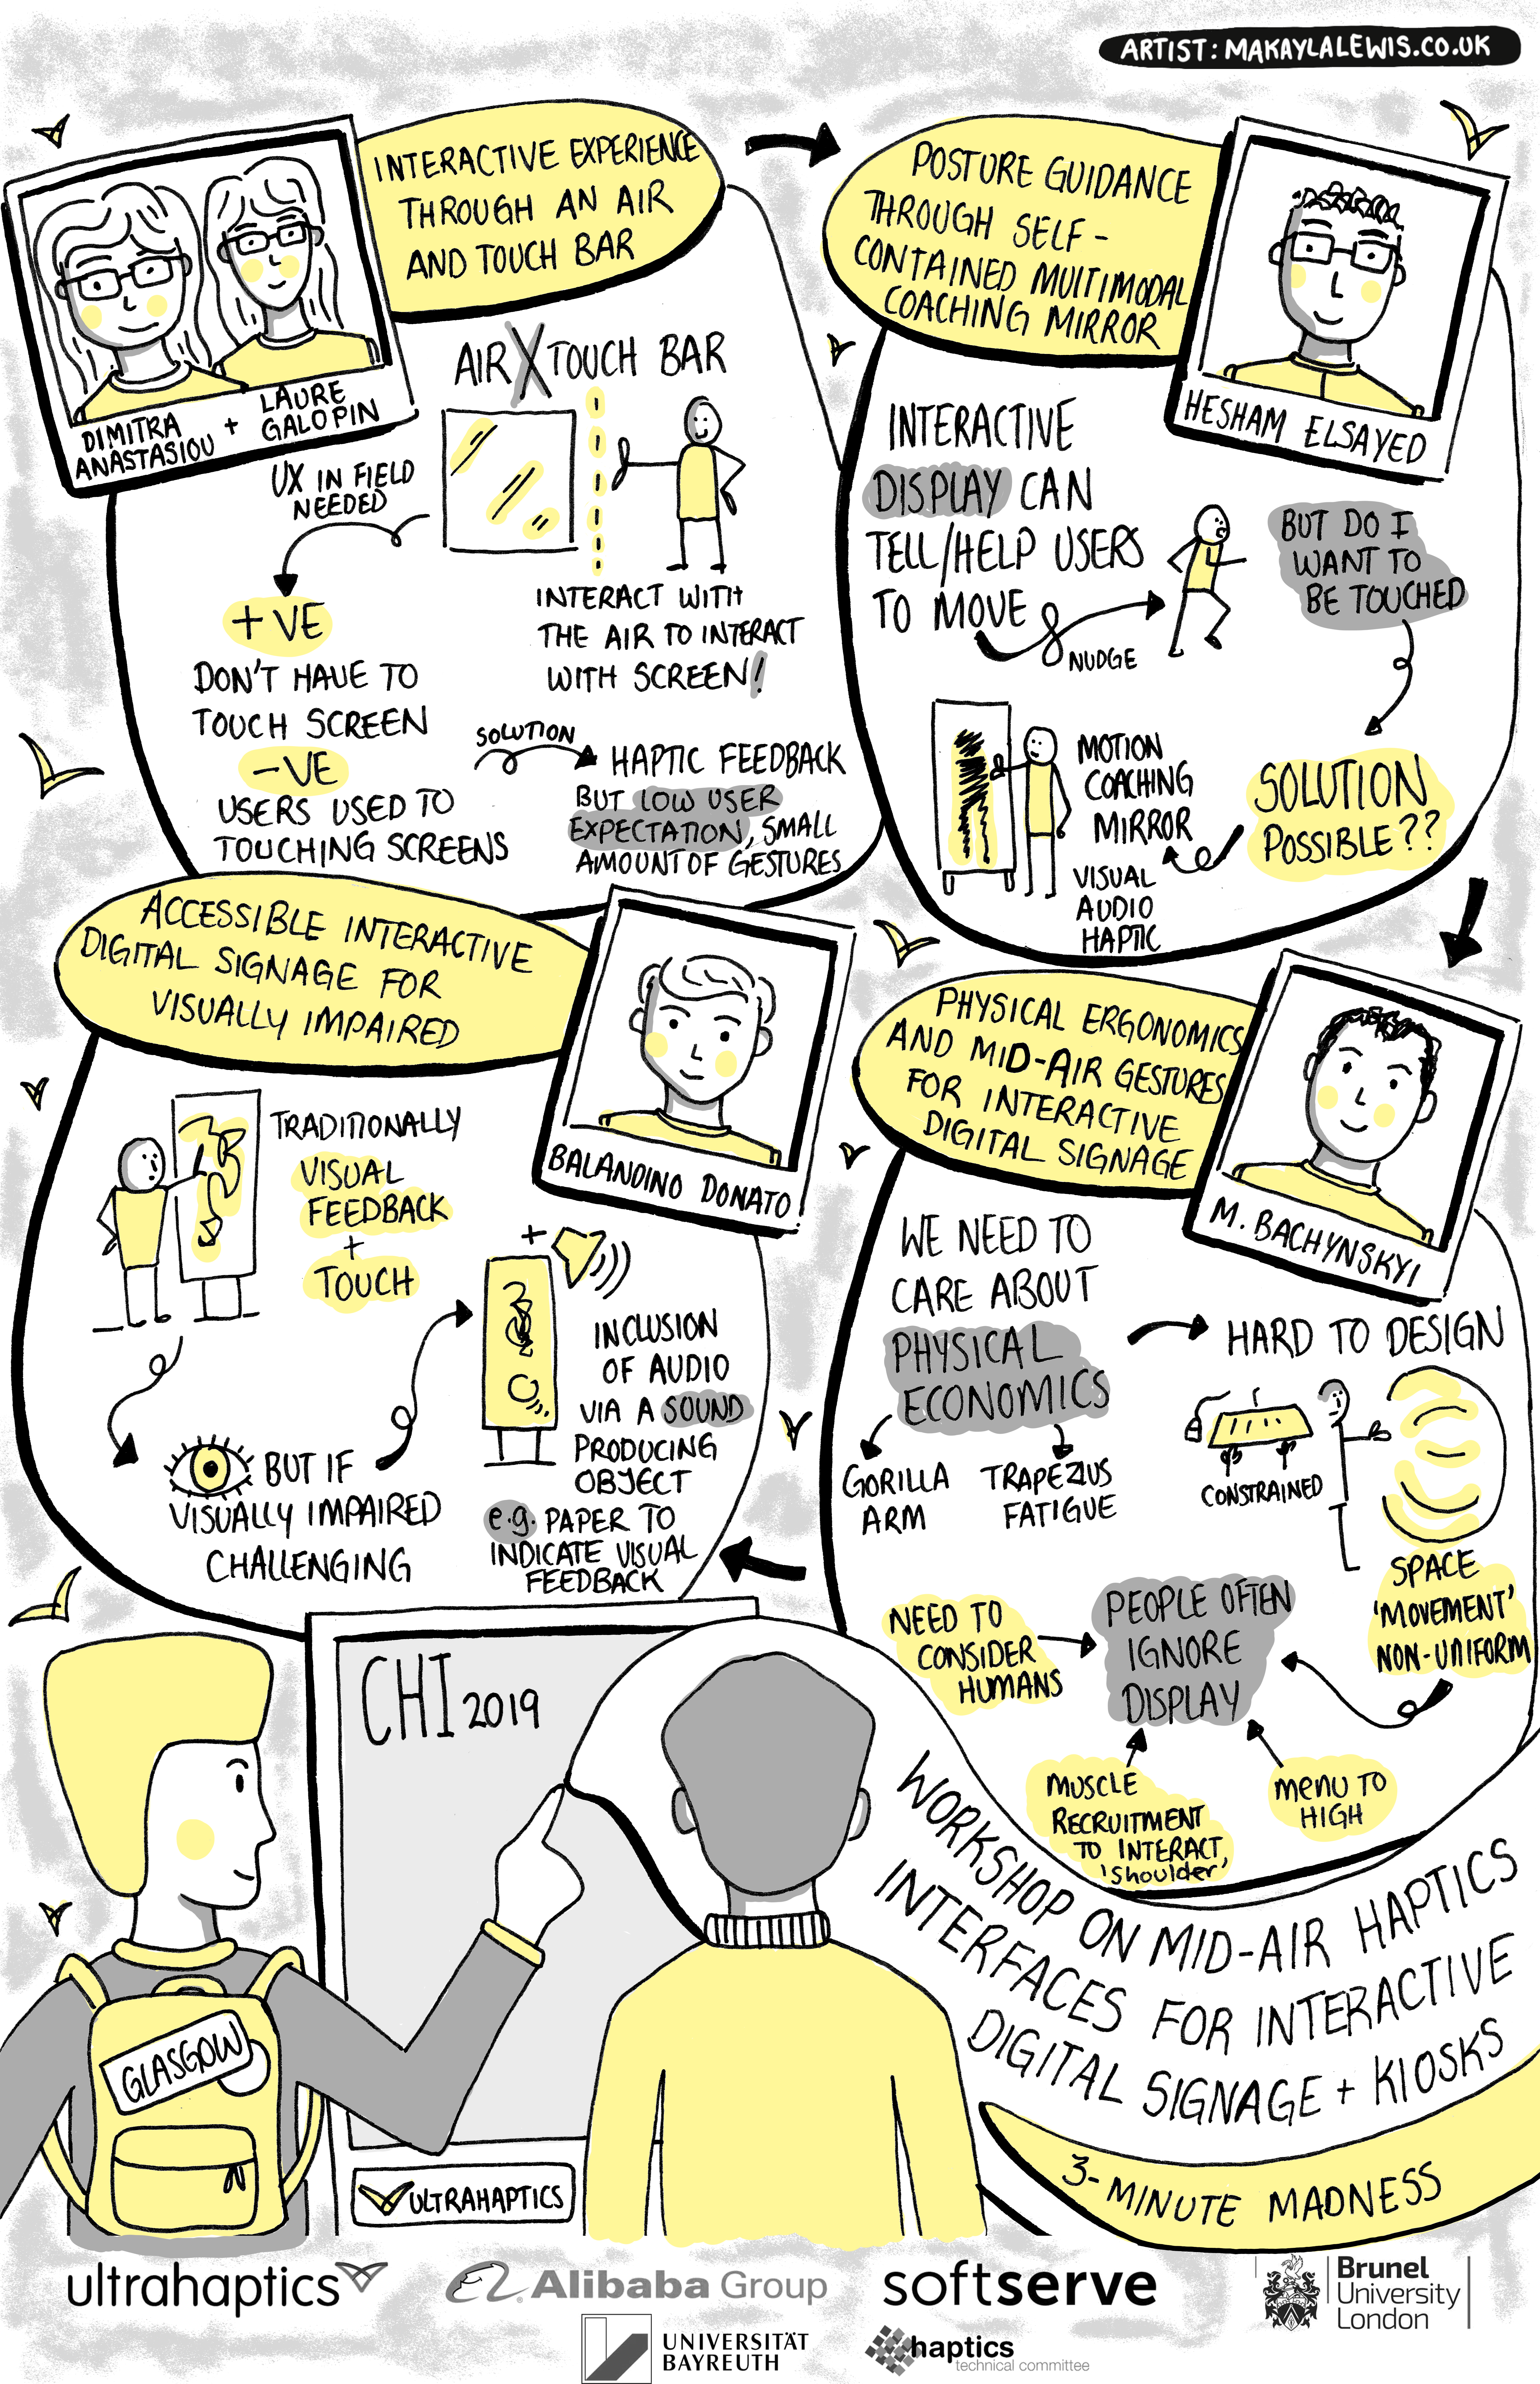 ARTIST: MAKAYLALEWIS.CO.UK
INTERACTIVE EXPERIENCE
THROUGH AN AIR
AND TOUCH BAR
DIMITRA
ANASTASIOU
+
LAURE
GALOPIN
AIR X TOUCH BAR
UX IN FIELD
NEEDED
INTERACT WITH
THE AIR TO INTERACT
WITH SCREEN!
+VE
DON'T HAVE TO
TOUCH SCREEN
-VE
USERS USED TO
TOUCHING SCREENS
SOLUTION
HAPTIC FEEDBACK
BUT LOW USER
EXPECTATION, SMALL
AMOUNT OF GESTURES
POSTURE GUIDANCE
THROUGH SELF-
CONTAINED MULTIMODAL
COACHING MIRROR
HESHAM ELSAYED
INTERACTIVE
DISPLAY CAN
TELL/HELP USERS
TO MOVE
NUDGE
BUT DO I
WANT TO
BE TOUCHED
SOLUTION
POSSIBLE??
MOTION
COACHING
MIRROR
VISUAL
AUDIO
HAPTIC
PHYSICAL ERGONOMICS
AND MID-AIR GESTURES
FOR INTERACTIVE
DIGITAL SIGNAGE
M. BACHYNSKYI
WE NEED TO
CARE ABOUT
PHYSICAL
ECONOMICS
GORILLA
ARM
TRAPEZIUS
FATIGUE
HARD TO DESIGN
CONSTRAINED
SPACE
'MOVEMENT'
NON-UNIFORM
NEED TO
CONSIDER
HUMANS
PEOPLE OFTEN
IGNORE
DISPLAY
MUSCLE
RECRUITMENT
TO INTERACT,
'shoulder'
MENU TO
HIGH
ACCESSIBLE INTERACTIVE
DIGITAL SIGNAGE FOR
VISUALLY IMPAIRED
BALANDINO DONATO
TRADITIONALLY
VISUAL
FEEDBACK
+
TOUCH
BUT IF
VISUALLY IMPAIRED
CHALLENGING
+
INCLUSION
OF AUDIO
VIA A SOUND
PRODUCING
OBJECT
e.g. PAPER TO
INDICATE VISUAL
FEEDBACK
CHI 2019
GLASGOW
ULTRAHAPTICS
WORKSHOP ON MID-AIR HAPTICS
INTERFACES FOR INTERACTIVE
DIGITAL SIGNAGE + KIOSKS
3-MINUTE MADNESS
ultrahaptics
Alibaba Group
softserve
Brunel
University
London
UNIVERSITÄT
BAYREUTH
haptics
technical committee